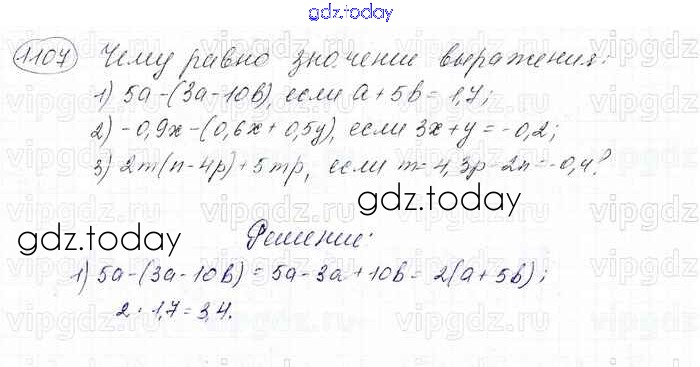 gdz.today
1107 Чему равно значение выражения:
1) 5a-(3a-10b), если a+5b=1,7;
2) -0,9x-(0,6x+0,5y), если 3x+y=-0,2;
3) 2m(n-4p)+5mp, если m=4, 3p-2n=-0,4?
gdz.today
gdz.today
Решение:
1) 5a-(3a-10b)=5a-3a+10b=2(a+5b);
2·1,7=3,4.